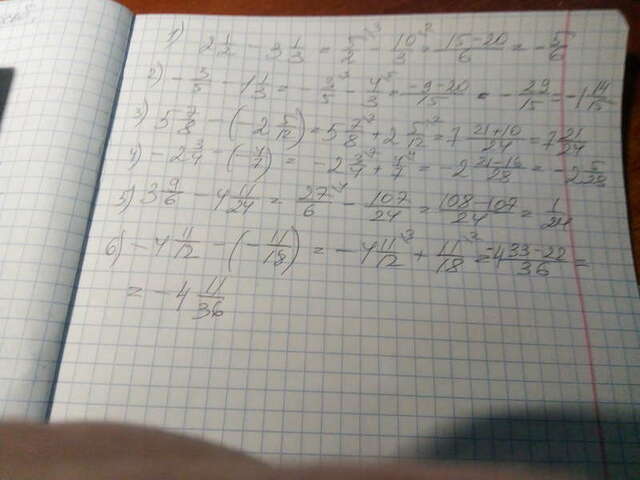 1) 2 1/2 - 3 1/3 = 5/2 - 10/3 = 15-20/6 = - 5/6
2) - 3/5 - 1 1/3 = - 3/5 - 4/3 = -9-20/15 = - 29/15 = -1 14/15
3) 5 7/8 - (-2 5/12) = 5 7/8 + 2 5/12 = 7 21+10/24 = 7 21/24
4) -2 3/4 - (- 4/7) = -2 3/4 + 4/7 = 2 21-16/28 = -2 5/28
5) 3 9/6 - 4 11/24 = 27/6 - 107/24 = 108-107/24 = 1/24
6) -4 11/12 - (- 11/18) = -4 11/12 + 11/18 = -4 33-22/36 =
= -4 11/36